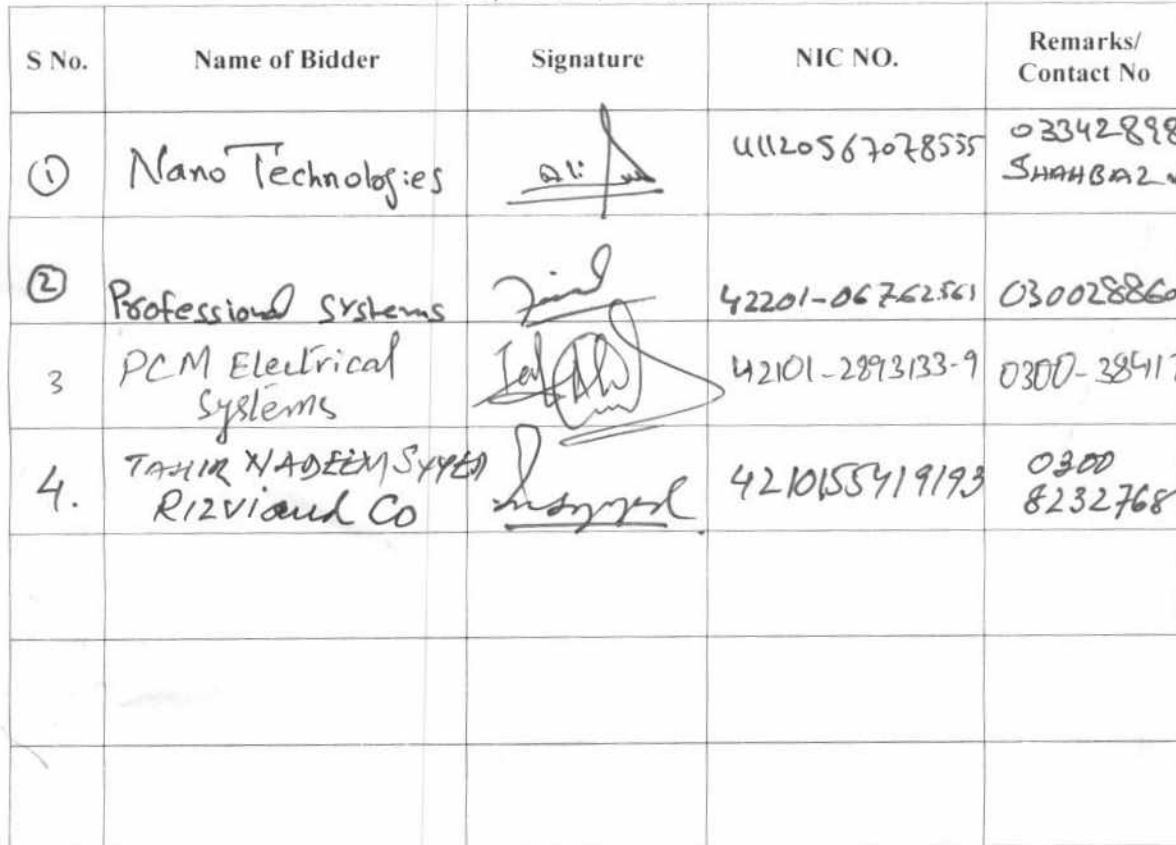 S No. Name of Bidder Signature NIC NO. Remarks/
Contact No
① Nano Technologies Ali 4112056707855 03342898
SHAHBAZ
② Professional Systems 42201-06762561 030028860
3 PCM Electrical 42101-2893133-9 0300-38417
Systems
4. TAHIR NADEEM SYYED 4210155419193 0300
Rizvi and Co 8232768